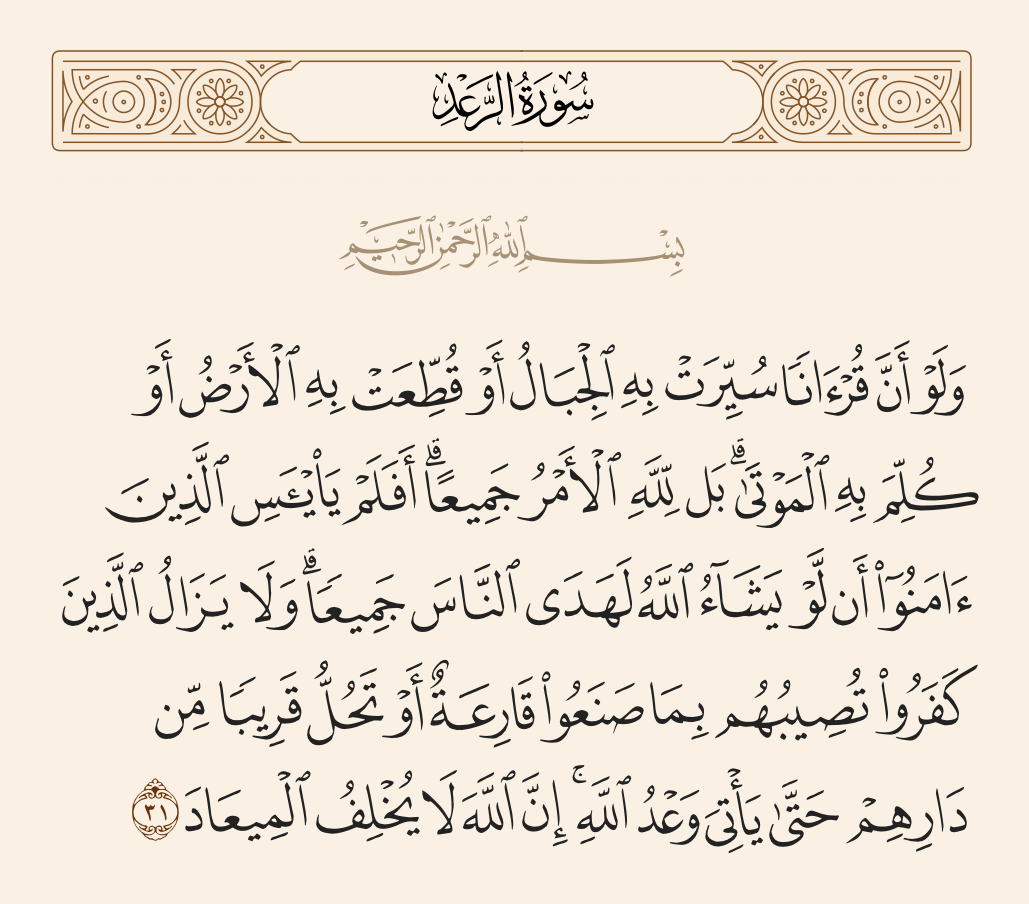 سُورَةُ الرَّعْدِ
بِسْمِ ٱللَّهِ ٱلرَّحْمَٰنِ ٱلرَّحِيمِ
وَلَوْ أَنَّ قُرْءَانًا سُيِّرَتْ بِهِ ٱلْجِبَالُ أَوْ قُطِّعَتْ بِهِ ٱلْأَرْضُ أَوْ
كُلِّمَ بِهِ ٱلْمَوْتَىٰ ۗ بَل لِّلَّهِ ٱلْأَمْرُ جَمِيعًا ۗ أَفَلَمْ يَا۟يْـَٔسِ ٱلَّذِينَ
ءَامَنُوٓا۟ أَن لَّوْ يَشَآءُ ٱللَّهُ لَهَدَى ٱلنَّاسَ جَمِيعًا ۗ وَلَا يَزَالُ ٱلَّذِينَ
كَفَرُوا۟ تُصِيبُهُم بِمَا صَنَعُوا۟ قَارِعَةٌ أَوْ تَحُلُّ قَرِيبًا مِّن
دَارِهِمْ حَتَّىٰ يَأْتِىَ وَعْدُ ٱللَّهِ ۚ إِنَّ ٱللَّهَ لَا يُخْلِفُ ٱلْمِيعَادَ ٣١